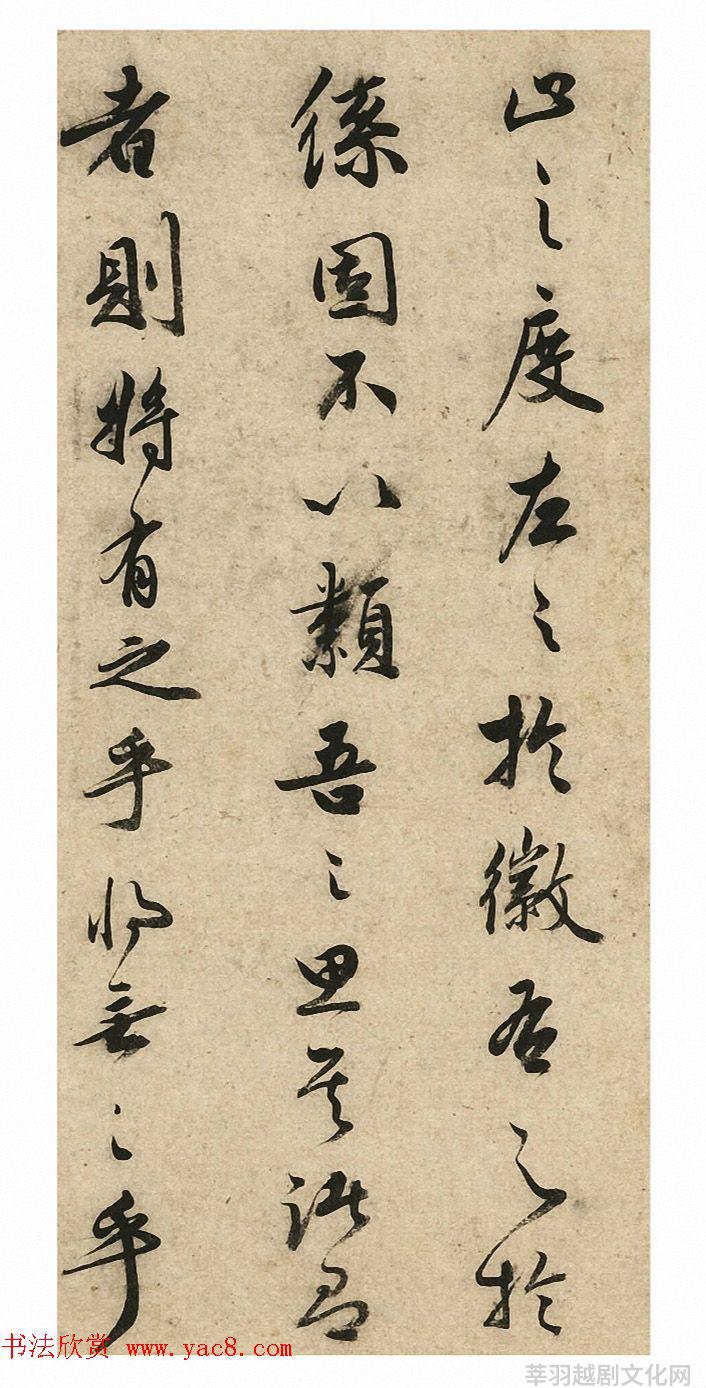 止之度左之於徽右之於
固不以類吾之思其
者則將有之乎將無之乎
书法欣赏 www.yac8.com
莘羽越剧文化网